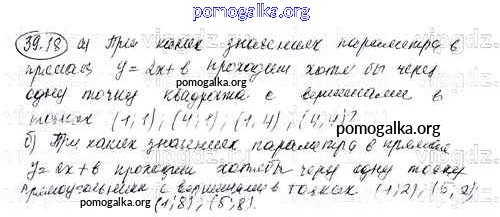 pomogalka.org
39.18 а) При каких значениях параметра в
прямая y = 2x+в проходит хотя бы через
pomogalka.org
одну точку квадрата с вершинами в
точках (1;1), (4;1), (1;4), (4;4)?
pomogalka.org
б) При каких значениях параметра в прямая
y = 2x+в проходит хотя бы через одну точку
pomogalka.org
прямоугольника с вершинами в точках (1;2), (5;2),
(1;8), (5;8).
pomogalka.org